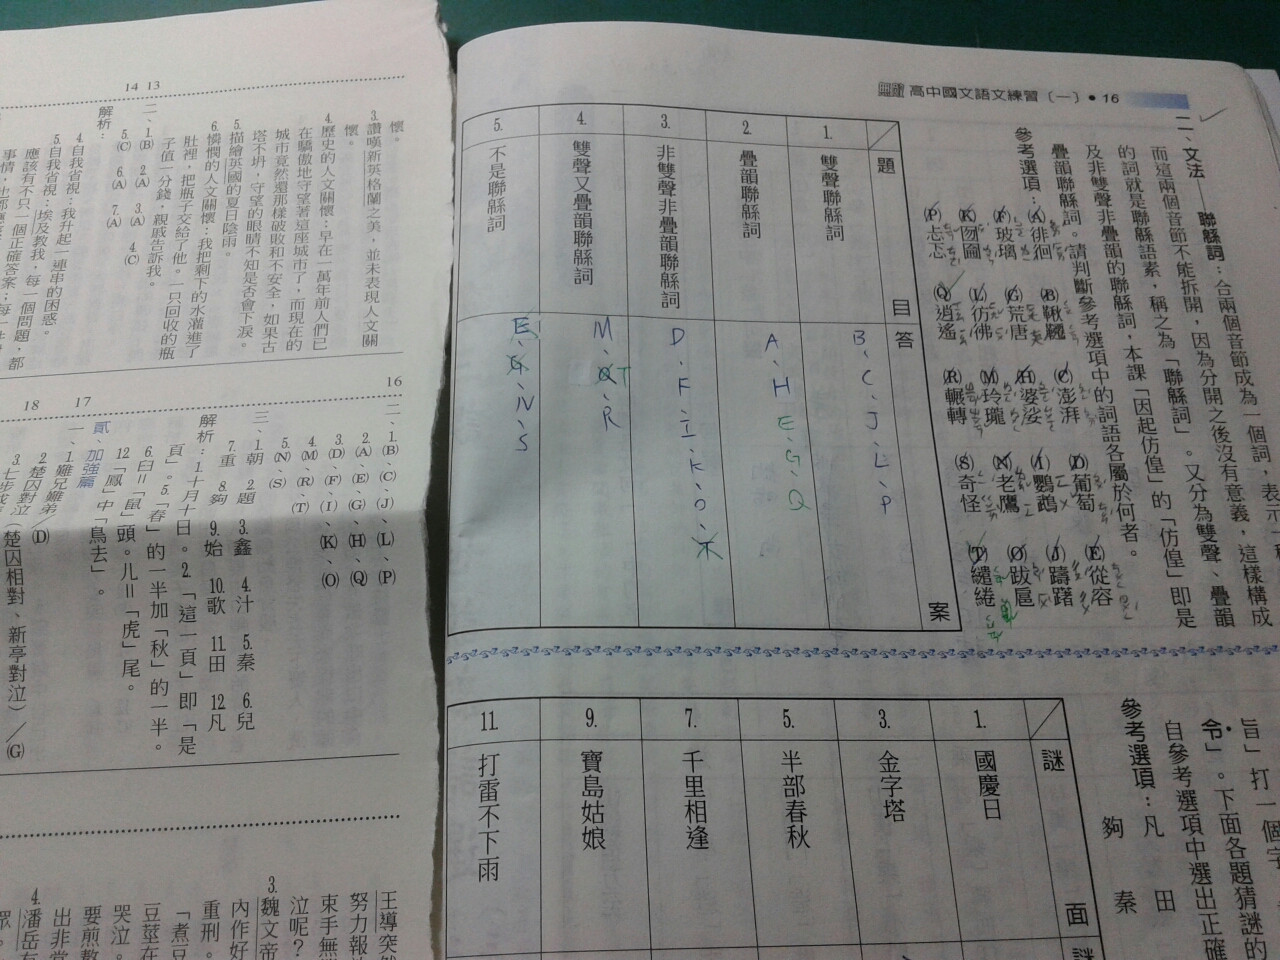 高中國文語文練習（一）•16
二、文法——聯緜詞：合兩個音節成為一個詞，表示一種
而這兩個音節不能拆開，因為分開之後沒有意義，這樣構成
的詞就是聯緜語素，稱之為「聯緜詞」。又分為雙聲、疊韻
及非雙聲非疊韻的聯緜詞，本課「因起仿偟」的「仿偟」即是
疊韻聯緜詞。請判斷參考選項中的詞語各屬於何者。
參考選項：
(A)徘徊 (B)鞦韆 (C)澎湃 (D)葡萄 (E)從容
(F)玻璃 (G)荒唐 (H)婆娑 (I)鸚鵡 (J)躊躇
(K)囫圇 (L)仿佛 (M)玲瓏 (N)老鷹 (O)跋扈
(P)忐忑 (Q)逍遙 (R)輾轉 (S)奇怪 (T)繾綣
題目 答案
1. 雙聲聯緜詞 B、C、J、L、P
2. 疊韻聯緜詞 A、H E、G、Q
3. 非雙聲非疊韻聯緜詞 D、F、I、K、O、
4. 雙聲又疊韻聯緜詞 M、Q T、R
5. 不是聯緜詞 E、G、N、S
旨」打一個字
令」。下面各題猜謎的
自參考選項中選出正確
參考選項：凡 田
夠 秦
謎面
1. 國慶日
3. 金字塔
5. 半部春秋
7. 千里相逢
9. 寶島姑娘
11. 打雷不下雨
14 13
懷。
3. 讚嘆新英格蘭之美，並未表現人文關
懷。
4. 歷史的人文關懷：早在一萬年前人們已
在驕傲地守望著這座城市了，而現在的
城市竟然還那樣破敗和不安全，如果古
塔不坍，守望的眼睛不知是否會下淚。
5. 描繪英國的夏日陰雨。
6. 憐憫的人文關懷：我把剩下的水灌進了
肚裡，把瓶子交給了他。一只回收的瓶
子值一分錢，親戚告訴我。
二、1.(B) 2.(A) 3.(A) 4.(C)
5.(C) 6.(A) 7.(A)
解析：
4. 自我省視：我升起一連串的困惑。
5. 自我省視：埃及教我，每一個問題，都
應該有不只一個正確答案；每一件
16
二、1.(B)、(C)、(J)、(L)、(P)
2.(A)、(E)、(G)、(H)、(Q)
3.(D)、(F)、(I)、(K)、(O)
4.(M)、(R)、(T)
5.(N)、(S)
三、1.朝 2.題 3.鑫 4.汁 5.秦 6.兒
7.重 8.夠 9.始 10.歌 11.田 12.凡
解析：1.十月十日。2.「這一頁」即「是
頁」。5.「春」的一半加「秋」的一半。
6.臼＝「鼠」頭。儿＝「虎」尾。
12.「鳳」中「鳥去」。
17
貳、加強篇
一、1.難兄難弟／(D)
18
2.楚囚對泣（楚囚相對、新亭對泣）／(G)
王導突然
努力報
束手無
泣呢？
3. 魏文帝
內作好
重刑。
「煮豆
豆莖在
哭泣。
要煎熬
出非常
4. 潘岳有